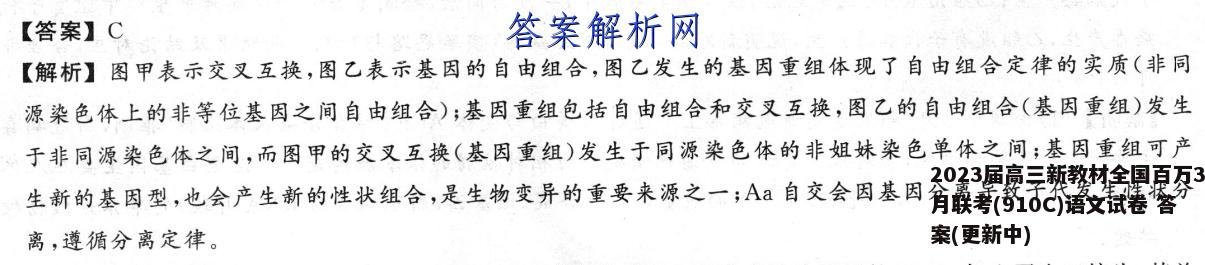 【答案】C
答案解析网
【解析】图甲表示交叉互换,图乙表示基因的自由组合,图乙发生的基因重组体现了自由组合定律的实质(非同
源染色体上的非等位基因之间自由组合);基因重组包括自由组合和交叉互换,图乙的自由组合(基因重组)发生
于非同源染色体之间,而图甲的交叉互换(基因重组)发生于同源染色体的非姐妹染色单体之间;基因重组可产
生新的基因型,也会产生新的性状组合,是生物变异的重要来源之一;Aa自交会因基因分离导致子代发生性状分
离,遵循分离定律。
2023届高三新教材全国百万3
月联考(910C)语文试卷 答
案(更新中)